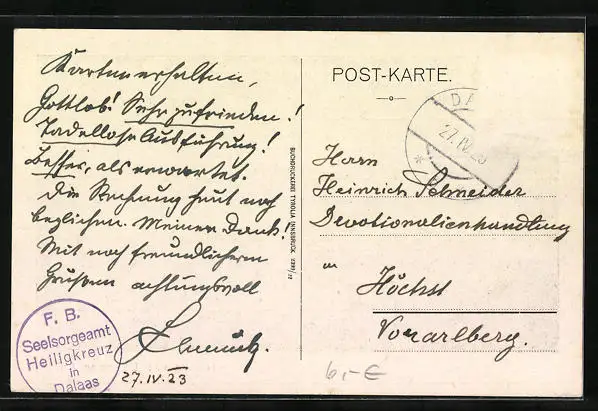 Karten erhalten,
Gottlob! Sehr zufrieden!
Tadellose Ausführung!
Besser, als erwartet.
Die Rechnung heut noch
beglichen. Meinen Dank!
Mit noch freundlicheren
Grüßen achtungsvoll
27.IV.23
F. B.
Seelsorgeamt
Heiligkreuz
in
Dalaas
BUCHDRUCKEREI TYROLIA INNSBRUCK
POST-KARTE.
DA
27.IV.23
Herrn
Heinrich Schneider
Devotionalienhandlung
in
Höchst
Vorarlberg.
6,-€